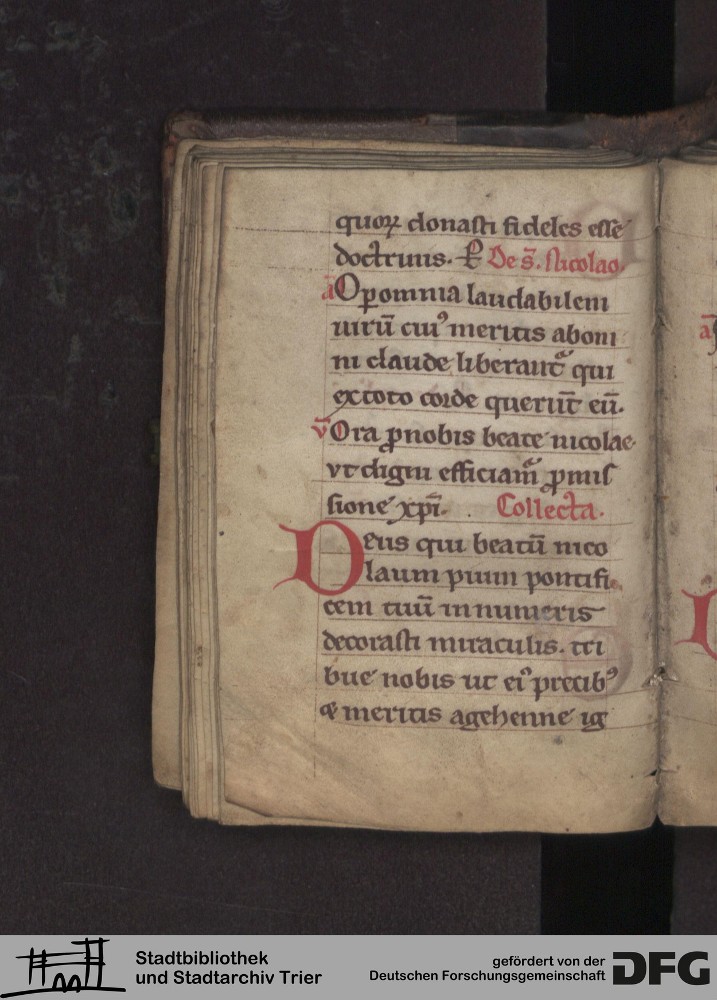 quoꝝ donasti fideles esse
doctrinis. P̲ De s̄. Nicolao.
ā O ꝑomnia laudabilem
uirū cui⁹ meritis abomi
ni claude liberant᷑ qui
extoto corde querūt eū.
v̄ Ora ꝓnobis beate nicolae
vt digni efficiam᷑ ꝓmis
sione xp̄i. . Collecta.
Deus qui beatū nico
laum pium pontifi
cem tuū innumeris
decorasti miraculis. tri
bue nobis ut ei⁹ precib⁹
& meritis agehenne ig
ā
Stadtbibliothek
und Stadtarchiv Trier
gefördert von der
Deutschen Forschungsgemeinschaft
DFG